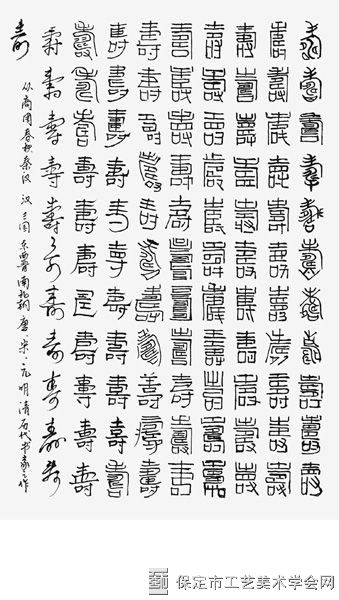 壽壽壽壽壽壽壽壽壽壽壽
壽壽壽壽壽壽壽壽壽壽壽
壽壽壽壽壽壽壽壽壽壽壽
壽壽壽壽壽壽壽壽壽壽壽
壽壽壽壽壽壽壽壽壽壽壽
壽壽壽壽壽壽壽壽壽壽壽
壽壽壽壽壽壽壽壽壽壽壽
壽壽壽壽壽壽壽壽壽壽壽
壽壽壽壽壽壽壽壽壽壽壽
壽
从商周春秋秦汉 汉 三国 东西晋南北朝 唐 宋 元 明 清历代书家之作
保定市工艺美术学会网